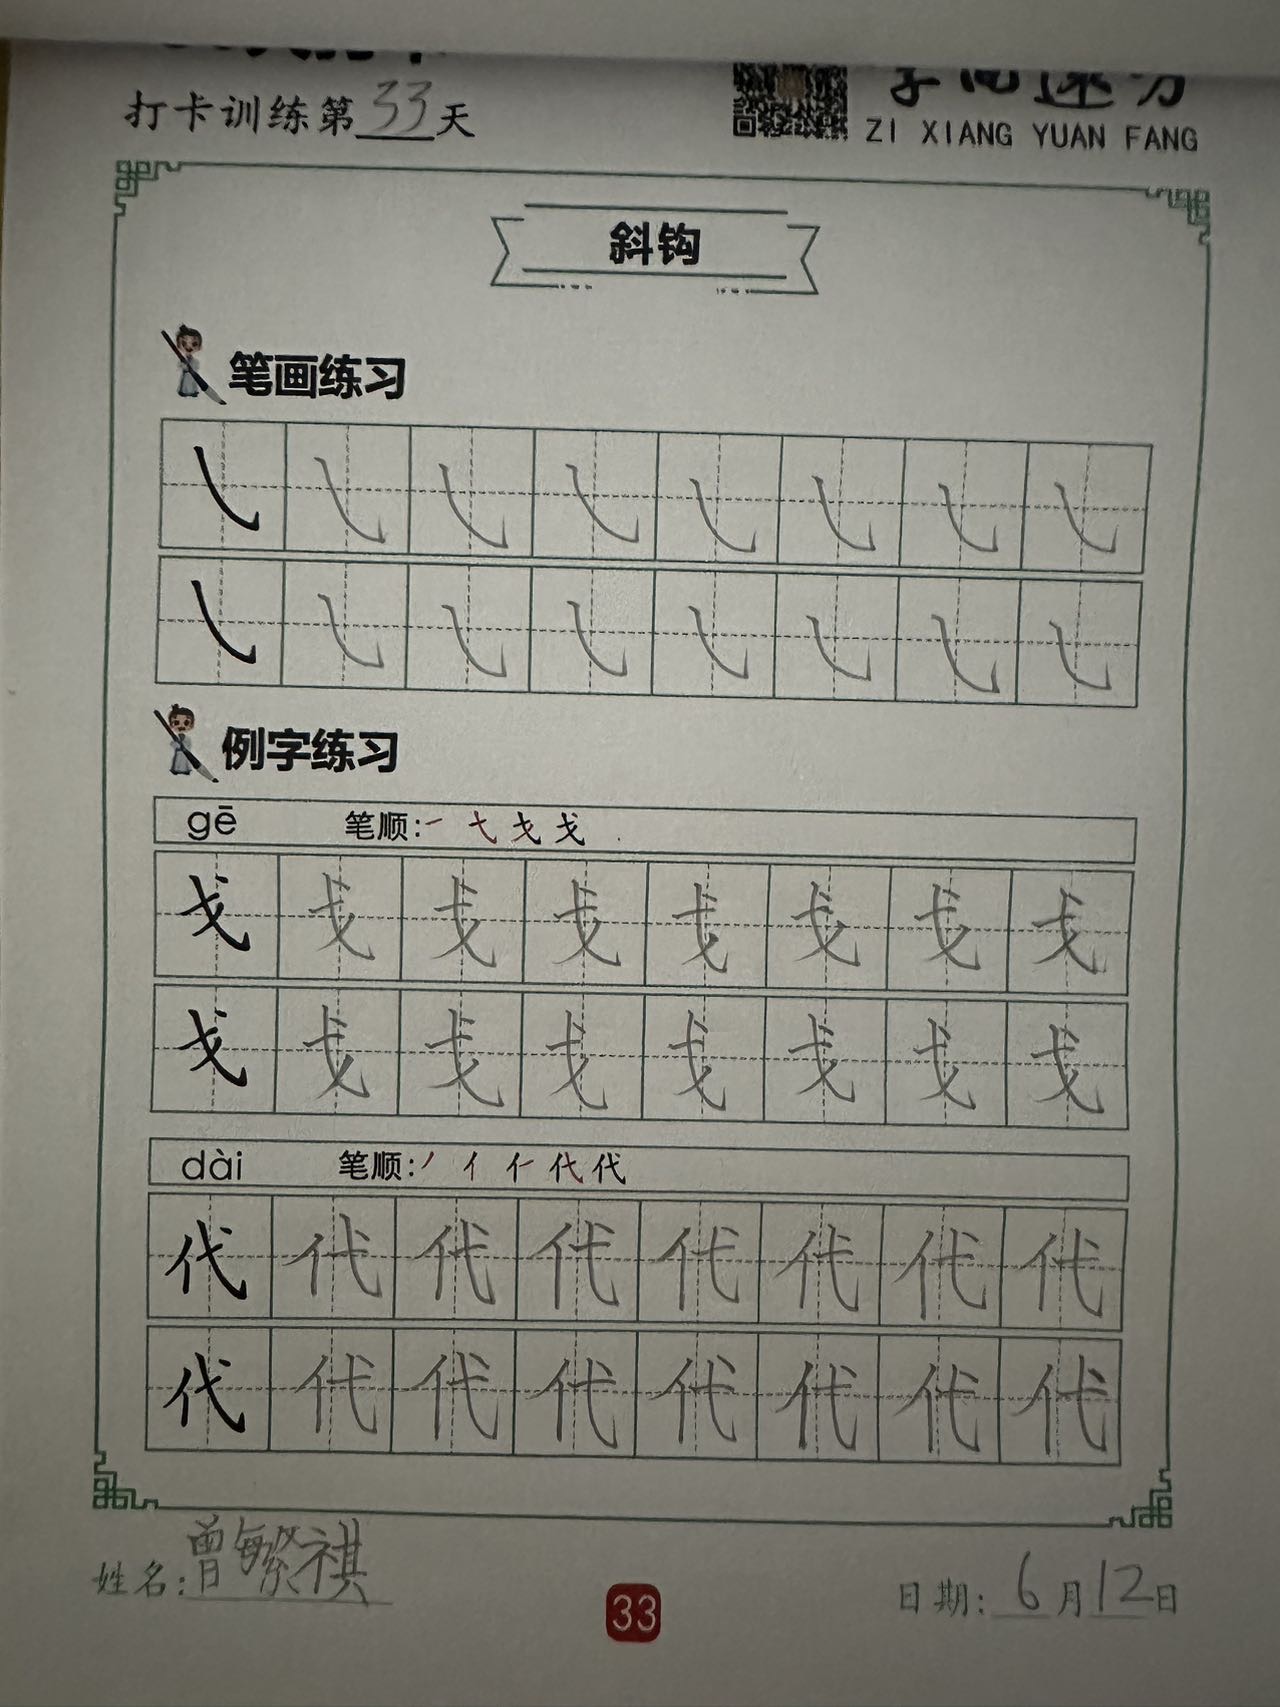 打卡训练第33天
ZI XIANG YUAN FANG
斜钩
笔画练习
㇂ ㇂ ㇂ ㇂ ㇂ ㇂ ㇂ ㇂
㇂ ㇂ ㇂ ㇂ ㇂ ㇂ ㇂ ㇂
例字练习
gē 笔顺:一 弋 戈 戈
戈 戈 戈 戈 戈 戈 戈 戈
戈 戈 戈 戈 戈 戈 戈 戈
dài 笔顺:丿 亻 仁 代 代
代 代 代 代 代 代 代 代
代 代 代 代 代 代 代 代
姓名:曾繁祺
33
日期:6月12日